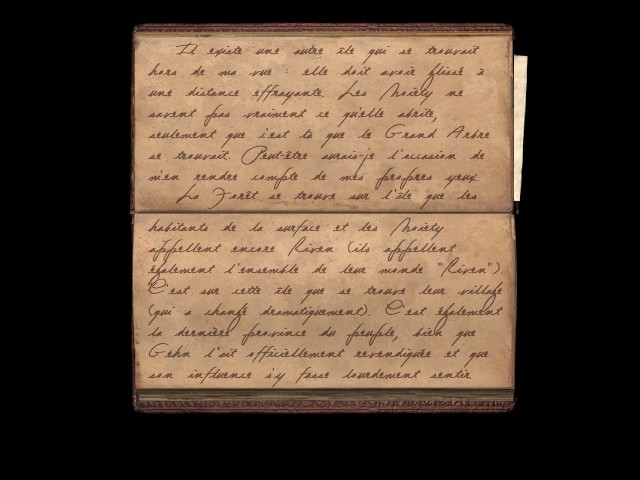 Il existe une autre île qui se trouvait
hors de ma vue : elle doit avoir glissé à
une distance effrayante. Les Moiety ne
savent pas vraiment ce qu'elle abrite,
seulement que c'est là que le Grand Arbre
se trouvait. Peut-être aurais-je l'occasion de
m'en rendre compte de mes propres yeux.
La Forêt se trouve sur l'île que les
habitants de la surface et les Moiety
appellent encore Riven (ils appellent
également l'ensemble de leur monde "Riven").
C'est sur cette île que se trouve leur village
(qui a changé dramatiquement). C'est également
la dernière province du peuple, bien que
Gehn l'ait officiellement revendiquée et que
son influence s'y fasse lourdement sentir